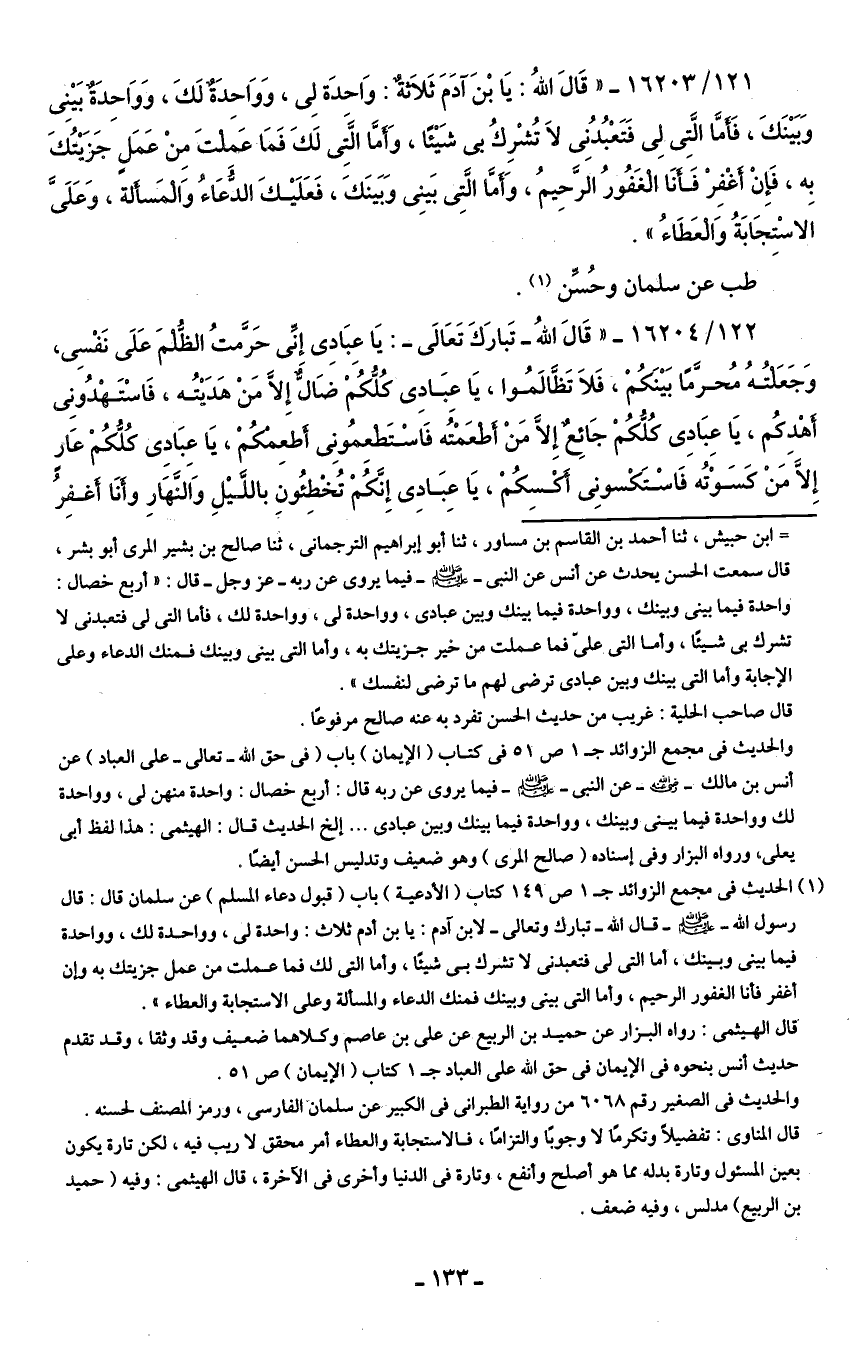 ١٦٢٠٣/١٢١ ـ « قَالَ اللهُ : يَا بْنَ آدَمَ ثَلَاثَةٌ : وَاحِدَة لِى ، وَوَاحِدَةٌ لَكَ ، وَوَاحِدَةٌ بَيْنِى
وَبَيْنَكَ ، فَأَمَّا الَّتِى لِى فَتَعْبُدُنِى لاَ تُشْرِكُ بِى شَيْئًا ، وَأَمَّا الَّتِى لَكَ فَمَا عَمِلْتَ مِنْ عَمَلٍ جَزَيْتُكَ
بِهِ ، فَإِنْ أَغْفِرْ فَأَنَا الْغَفُورُ الرَّحِيمُ ، وَأَمَّا الَّتِى بَيْنِى وَبَيْنَكَ ، فَعَلَيْكَ الدُّعَاءُ وَالْمَسأَلة ، وَعَلَىَّ
الاسْتِجَابَةُ وَالْعَطَاءُ » .
طب عن سلمان وحُسِّن (١) .
١٦٢٠٤/١٢٢ ـ « قَالَ اللهُ ـ تَبارَكَ تَعَالَى ـ : يَا عِبَادِى إِنِّى حَرَّمتُ الظُّلْمَ عَلَى نَفْسِى،
وَجَعَلْتُهُ مُحرَّمًا بَيْنَكُمْ ، فَلاَ تَظَّالَمُوا ، يَا عِبَادِى كُلُّكُمْ ضَالٌّ إِلاَّ مَنْ هَدَيْتُه ، فَاسْتَهْدُونِى
أَهْدِكُم ، يَا عِبَادِى كُلُّكُمْ جَائِعٌ إِلاَّ مَنْ أَطْعَمْتُه فَاسْتَطعِمُونِى أُطعِمكُمْ ، يَا عِبَادِى كُلُّكُمْ عَارٍ
إِلاَّ مَنْ كَسَوْتُه فَاسْتَكْسونِى أَكْسِكُمْ ، يَا عِبَادِى إِنَّكُمْ تُخْطِئُونَ بِاللَّيْلِ وَالنَّهَارِ وَأَنَا أَغْفِرُ
= ابن حبيش ، ثنا أحمد بن القاسم بن مساور ، ثنا أبو إبراهيم الترجمانى ، ثنا صالح بن بشير المرى أبو بشر ،
قال سمعت الحسن يحدث عن أنس عن النبى ـ ﷺ ـ فيما يروى عن ربه ـ عز وجل ـ قال : « أربع خصال :
واحدة فيما بينى وبينك ، وواحدة فيما بينك وبين عبادى ، وواحدة لى ، وواحدة لك ، فأما التى لى فتعبدنى لا
تشرك بى شيئًا ، وأما التى علىّ فما عملت من خير جزيتك به ، وأما التى بينى وبينك فمنك الدعاء وعلى
الإجابة وأما التى بينك وبين عبادى ترضى لهم ما ترضى لنفسك » .
قال صاحب الحلية : غريب من حديث الحسن تفرد به عنه صالح مرفوعًا .
والحديث فى مجمع الزوائد جـ ١ ص ٥١ فى كتاب ( الإيمان ) باب ( فى حق الله ـ تعالى ـ على العباد ) عن
أنس بن مالك ـ رضي الله عنه ـ عن النبى ـ ﷺ ـ فيما يروى عن ربه قال : أربع خصال : واحدة منهن لى ، وواحدة
لك وواحدة فيما بينى وبينك ، وواحدة فيما بينك وبين عبادى ... إلخ الحديث قال : الهيثمى : هذا لفظ أبى
يعلى، ورواه البزار وفى إسناده ( صالح المرى ) وهو ضعيف وتدليس الحسن أيضًا .
(١) الحديث فى مجمع الزوائد جـ ١ ص ١٤٩ كتاب ( الأدعية ) باب ( قبول دعاء المسلم ) عن سلمان قال : قال
رسول الله ـ ﷺ ـ قال الله ـ تبارك وتعالى ـ لابن آدم : يا بن أدم ثلاث : واحدة لى ، وواحدة لك ، وواحدة
فيما بينى وبينك ، أما التى لى فتعبدنى لا تشرك بى شيئًا ، وأما التى لك فما عملت من عمل جزيتك به وإن
أغفر فأنا الغفور الرحيم ، وأما التى بينى وبينك فمنك الدعاء والمسألة وعلى الاستجابة والعطاء » .
قال الهيثمى : رواه البزار عن حميد بن الربيع عن على بن عاصم وكلاهما ضعيف وقد وثقا ، وقد تقدم
حديث أنس بنحوه فى الإيمان فى حق الله على العباد جـ ١ كتاب ( الإيمان ) ص ٥١ .
والحديث فى الصغير رقم ٦٠٦٨ من رواية الطبرانى فى الكبير عن سلمان الفارسى ، ورمز المصنف لحسنه .
قال المناوى : تفضيلاً وتكرمًا لا وجوبًا والتزامًا ، فالاستجابة والعطاء أمر محقق لا ريب فيه ، لكن تارة يكون
بعين المسئول وتارة بدله مما هو أصلح وأنفع ، وتارة فى الدنيا وأخرى فى الآخرة ، قال الهيثمى : وفيه ( حميد
بن الربيع) مدلس ، وفيه ضعف .
ـ ١٣٣ ـ